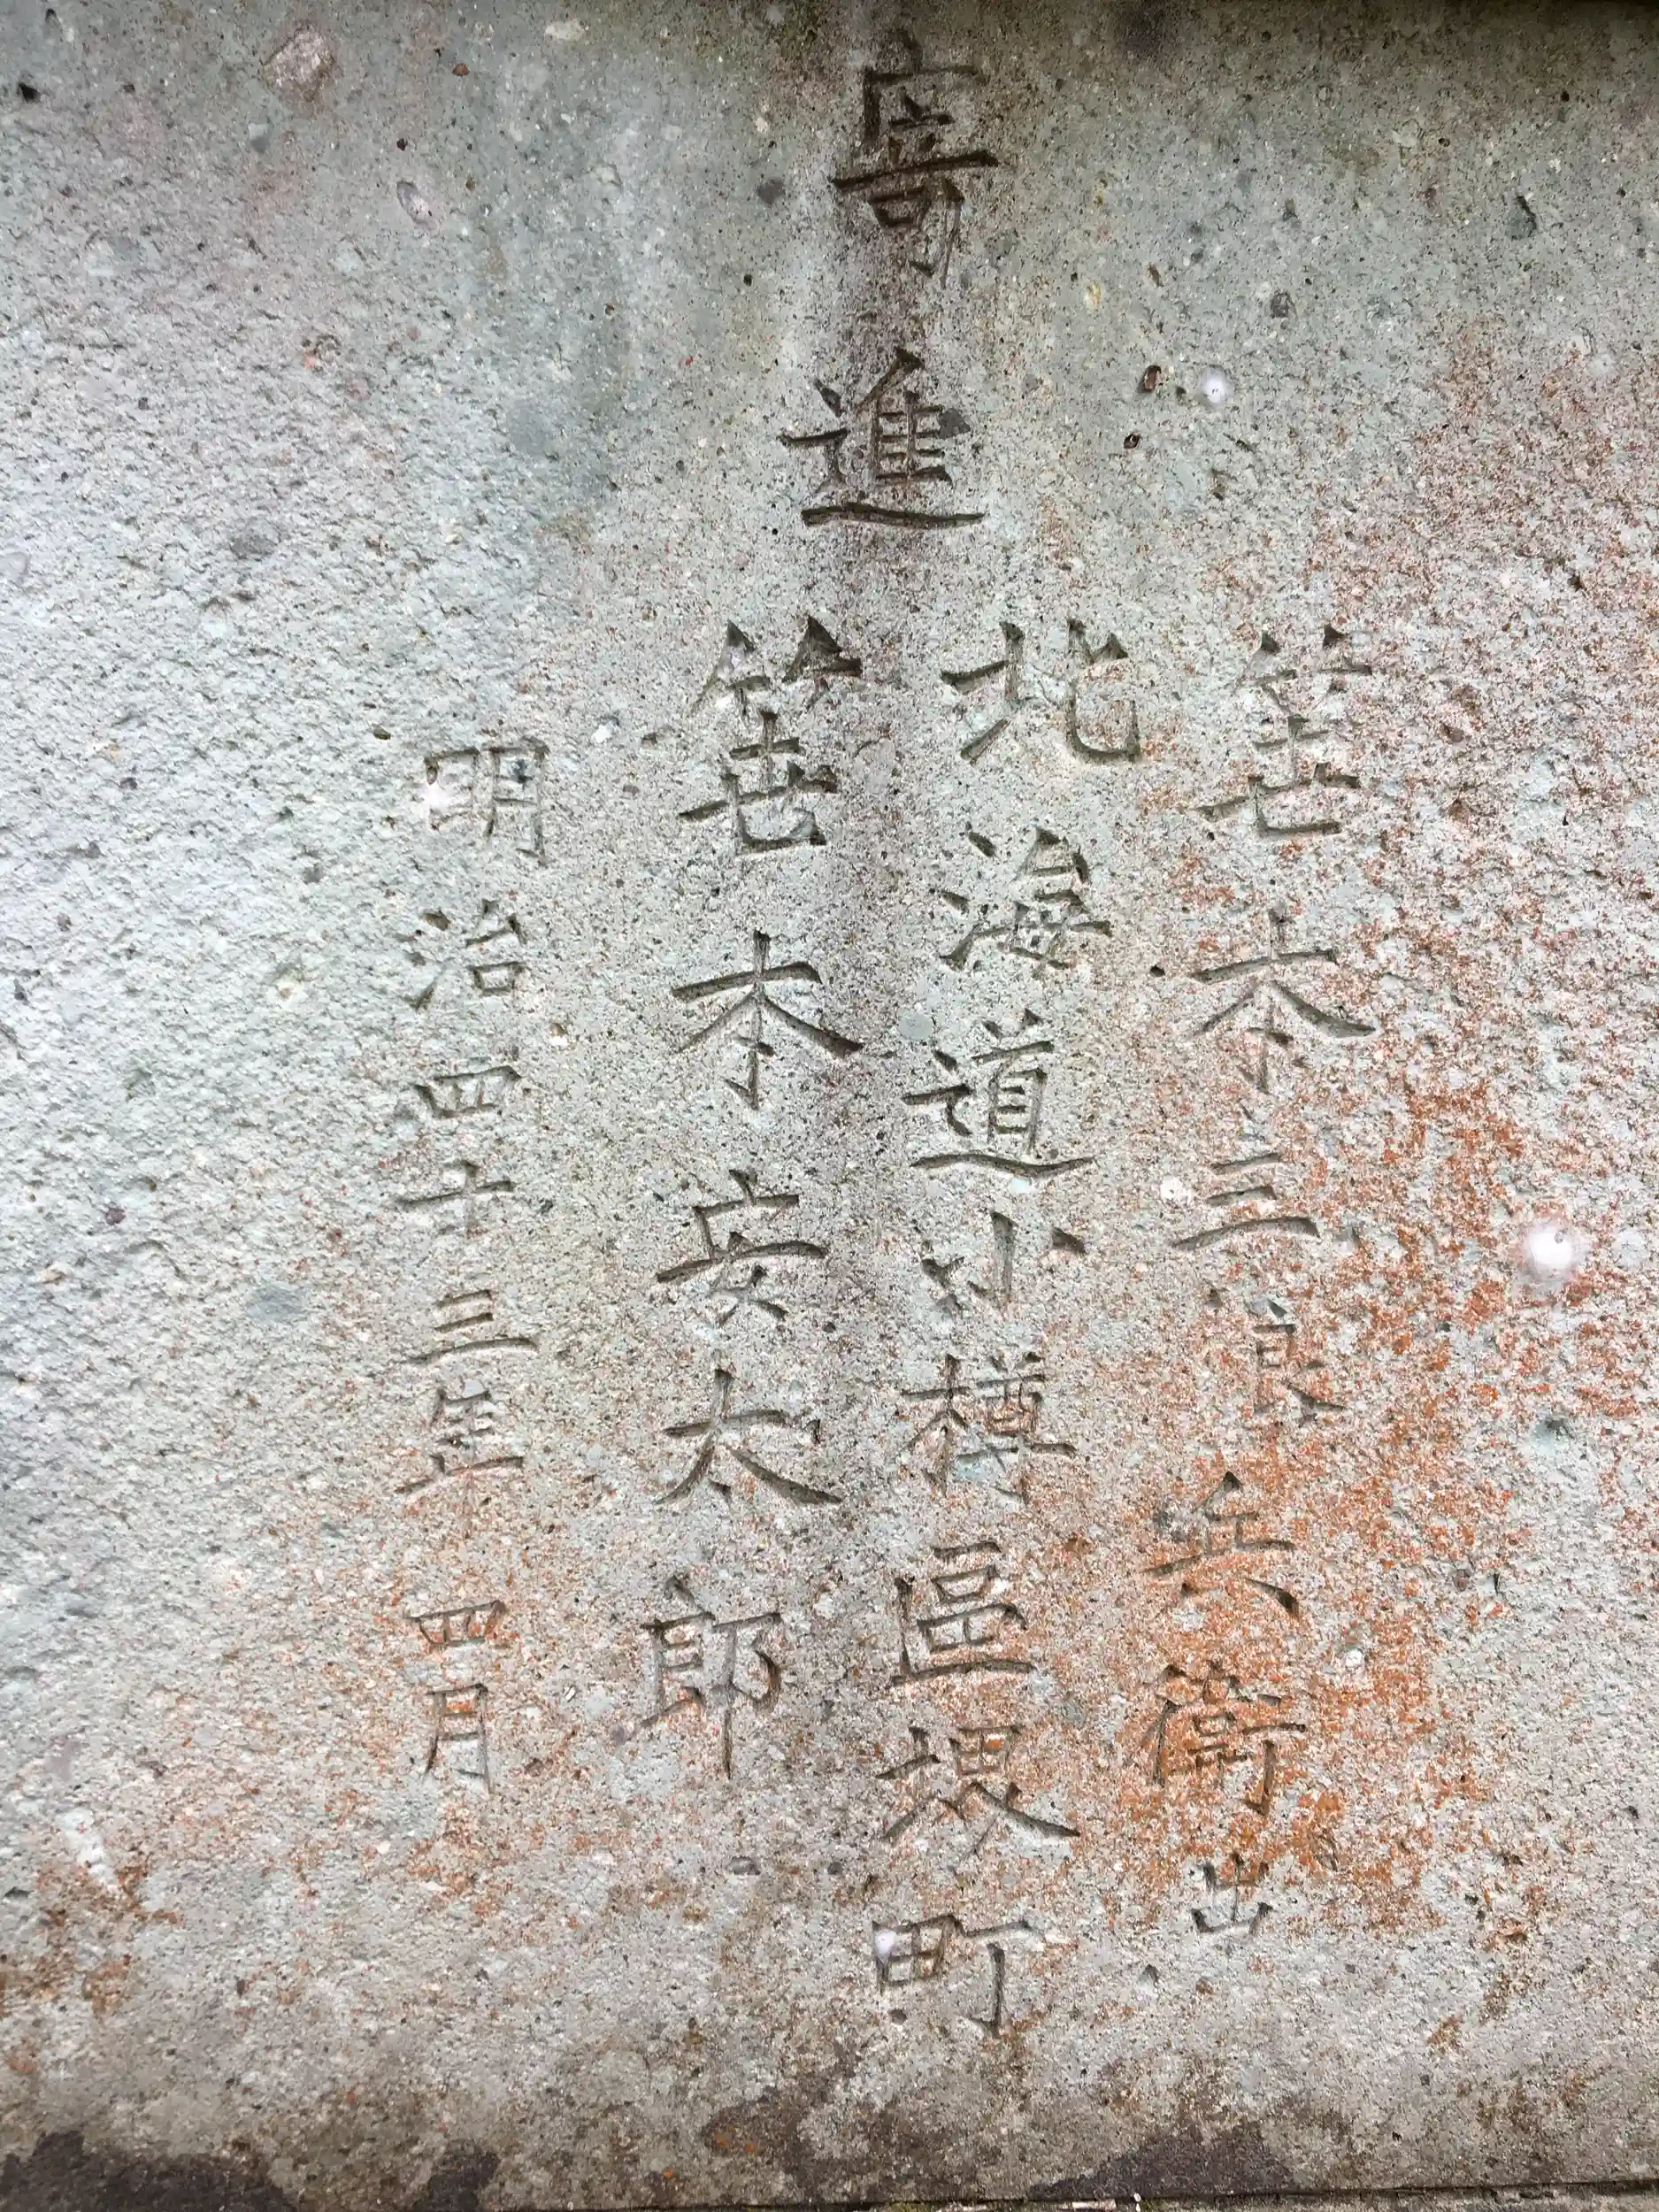 寄進
笹本三良兵衛出
北海道小樽區堺町
笹本安太郎
明治四十三年四月